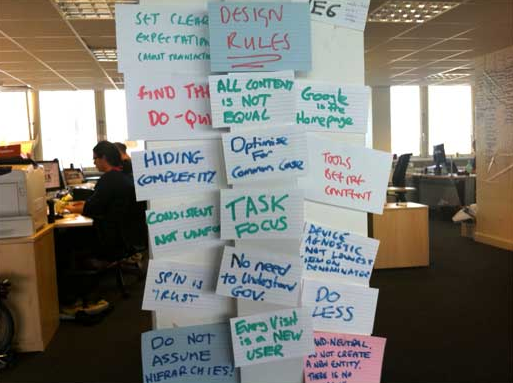 SET CLEAR
EXPECTATION
(ABOUT
DESIGN
RULES
EG
FIND THE
DO -
ALL CONTENT
IS NOT
EQUAL
Google
is the
Homepage
HIDING
COMPLEXITY
Optimise
For
Common Case
TOOLS
BEFORE
CONTENT
CONSISTENT
NOT
TASK
FOCUS
DEVICE
AGNOSTIC
NOT LOWEST
DENOMINATOR
SPIN IS
TRUST
No need
to Understand
Gov.
DO
LESS
DO NOT
ASSUME
HIERARCHIES!
Every Visit
is a NEW
USER
NOT CREATE
A NEW
ENTITY.
THERE IS NO